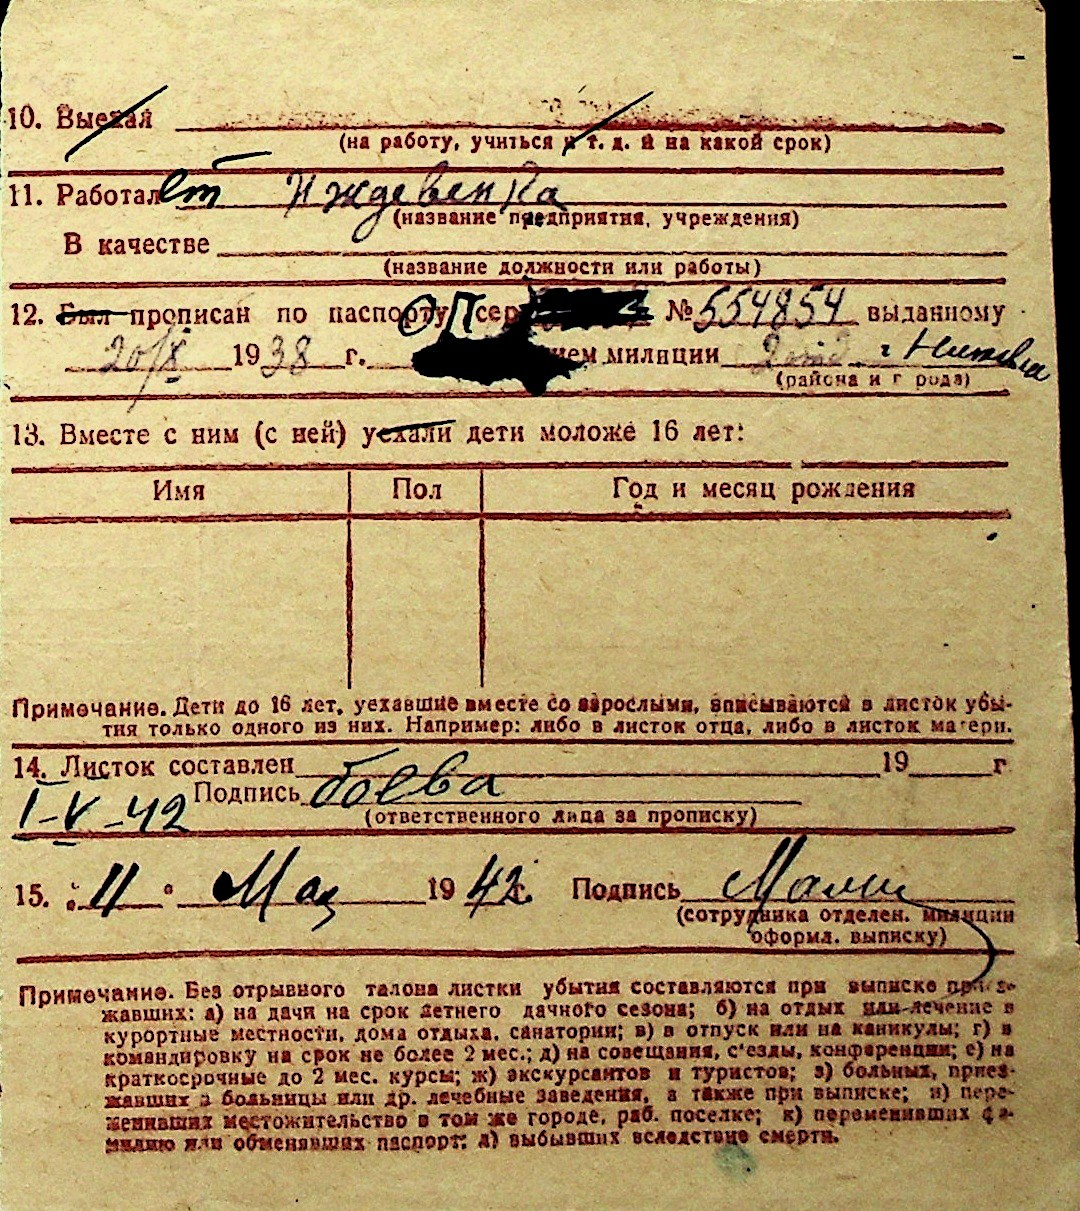 10. Выехал
(на работу, учиться и т. д. и на какой срок)
11. Работает Иждевенка
(название предприятия, учреждения)
В качестве
(название должности или работы)
12. Был прописан по паспорту ОП сер № 554854 выданному
20/X 1938 г. нием милиции г
(района и г рода)
13. Вместе с ним (с ней) уехали дети моложе 16 лет:
Имя Пол Год и месяц рождения
Примечание. Дети до 16 лет, уехавшие вместе со взрослыми, вписываются в листок убы-
тия только одного из них. Например: либо в листок отца, либо в листок матери.
14. Листок составлен 19 г
Подпись боева
I-V-42
(ответственного лица за прописку)
15. "11" Мая 1942 г. Подпись
(сотрудника отделен. милиции
оформл. выписку)
Примечание. Без отрывного талона листки убытия составляются при выписке приез-
жавших: а) на дачи на срок летнего дачного сезона; б) на отдых или лечение в
курортные местности, дома отдыха, санатории; в) в отпуск или на каникулы; г) в
командировку на срок не более 2 мес.; д) на совещания, с'езды, конференции; е) на
краткосрочные до 2 мес. курсы; ж) экскурсантов и туристов; з) больных, приез-
жавших в больницы или др. лечебные заведения, а также при выписке; и) пере-
менивших местожительство в том же городе, раб. поселке; к) переменивших фа-
милию или обменявших паспорт; л) выбывших вследствие смерти.